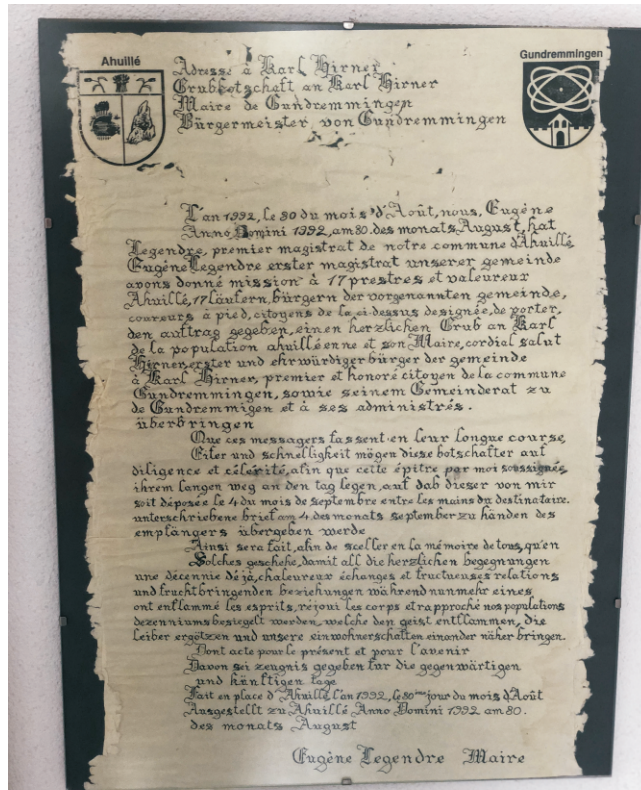 Ahuillé
Gundremmingen
Adresse à Karl Hirner
Grubbotschaft an Karl Hirner
Maire de Gundremmingen
Bürgermeister von Gundremmingen
L'an 1992, le 30 du mois d'Août, nous, Eugène
Anno Domini 1992, am 30. des monats August, hat
Legendre, premier magistrat de notre commune d'Ahuillé
Eugène Legendre erster magistrat unserer gemeinde
avons donné mission à 17 prestres et valeureux
Ahuillé, 17 läufern, bürgern der vorgenannten gemeinde,
coureurs à pied, citoyens de la ci-dessus designée, de porter,
den auftrag gegeben, einen herzlichen Grub an Karl
de la population ahuilléenne et son Maire, cordial salut
Hirner, erster und ehrwürdiger bürger der gemeinde
à Karl Hirner, premier et honoré citoyen de la commune
Gundremmingen, sowie seinem Gemeinderat zu
de Gundremmigen et à ses administrés.
überbringen
Que ces messagers fassent en leur longue course,
Eifer und schnelligkeit mögen diese botschafter auf
diligence et célérité, afin que cette épitre par moi soussignés
ihrem langen weg an den tag legen, auf dab dieser von mir
soit déposée le 4 du mois de septembre entre les mains du destinataire.
unterschriebene brief am 4 des monats september zu händen des
empfängers übergeben werde
Ainsi sera fait, afin de sceller en la mémoire de tous, qu'en
Solches geschehe, damit all die herzlichen begegnungen
une décennie déjà, chaleureux échanges et fructueuses relations
und fruchtbringenden beziehungen während nunmehr eines
ont enflammé les esprits, réjoui les corps et rapproché nos populations
dezenniums besiegelt werden, welche den geist entflammen, die
leiber ergötzen und unsere einwohnerschaften einander näher bringen.
Dont acte pour le présent et pour l'avenir
Davon sei zeugnis gegeben für die gegenwärtigen
und künftigen tage
Fait en place d'Ahuillé l'an 1992, le 30ème jour du mois d'Août
Ausgestellt zu Ahuillé Anno Domini 1992 am 30.
des monats August
Eugène Legendre Maire